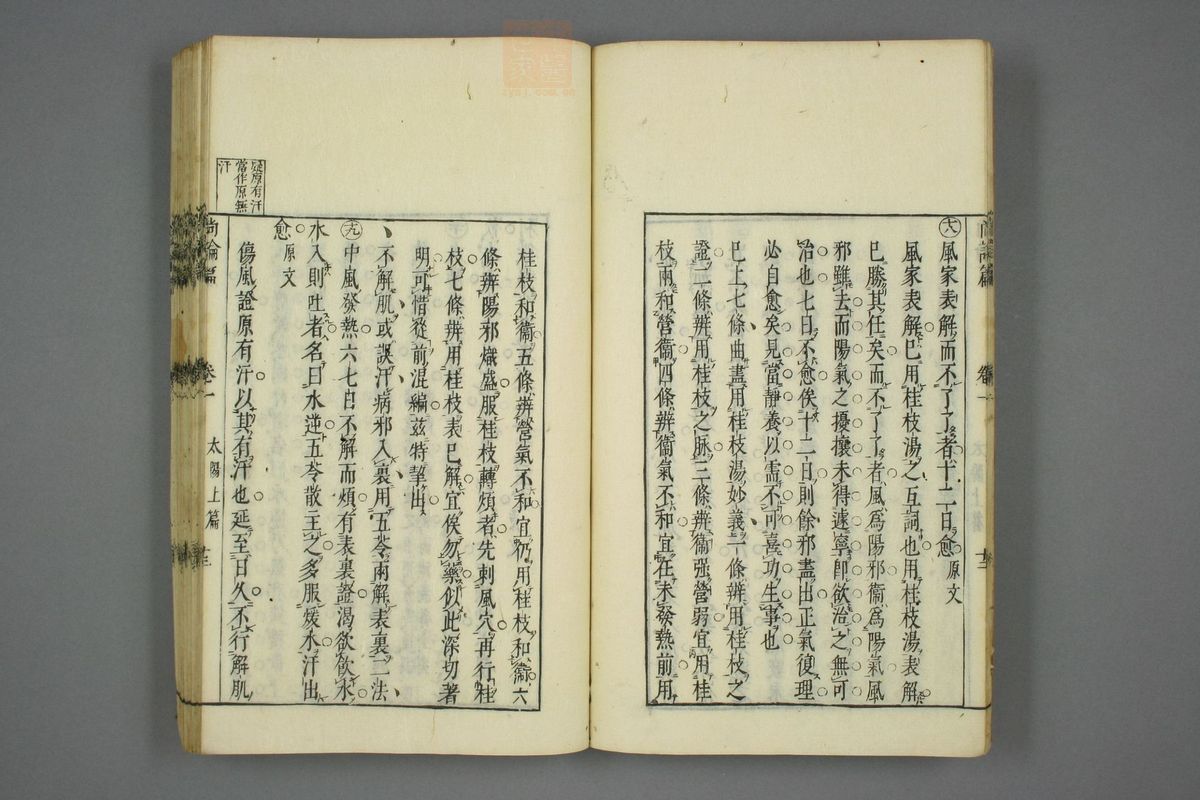 尚論篇 卷一
㊅風家表解而不了了者十二日愈原文
風家表解巳用桂枝湯之互詞也用桂枝湯表解
巳勝其任矣而不了了者風爲陽邪衞爲陽氣風
邪雖去而陽氣之擾攘未得遽寧卽欲治之無可
治也七日不愈俟十二日則餘邪盡出正氣復理
必自愈矣見當靜養以需不可喜功生事也
巳上七條曲盡用桂枝湯妙義一條辨用桂枝之
證二條辨用桂枝之脉三條辨衞强營弱宜用桂
枝兩和營衞四條辨衞氣不和宜在未發熱前用
桂枝和衞五條辨營氣不和宜仍用桂枝和衞六
條辨陽邪熾盛服桂枝轉煩者先刺風穴再行桂
枝七條辨用桂枝表巳解宜俟勿藥似此深切著
明可惜從前混編茲特拏出
不解肌或誤汗病邪入裏用五苓兩解表裏二法
㊈中風發熱六七日不解而煩有表裏證渴欲飮水
水入則吐者名曰水逆五苓散主之多服煖水汗出
愈原文
傷風證原有汗以其有汗也延至日久不行解肌
疑原有汗
當作原無
汗
尚論篇 卷一 太陽上篇 廿三